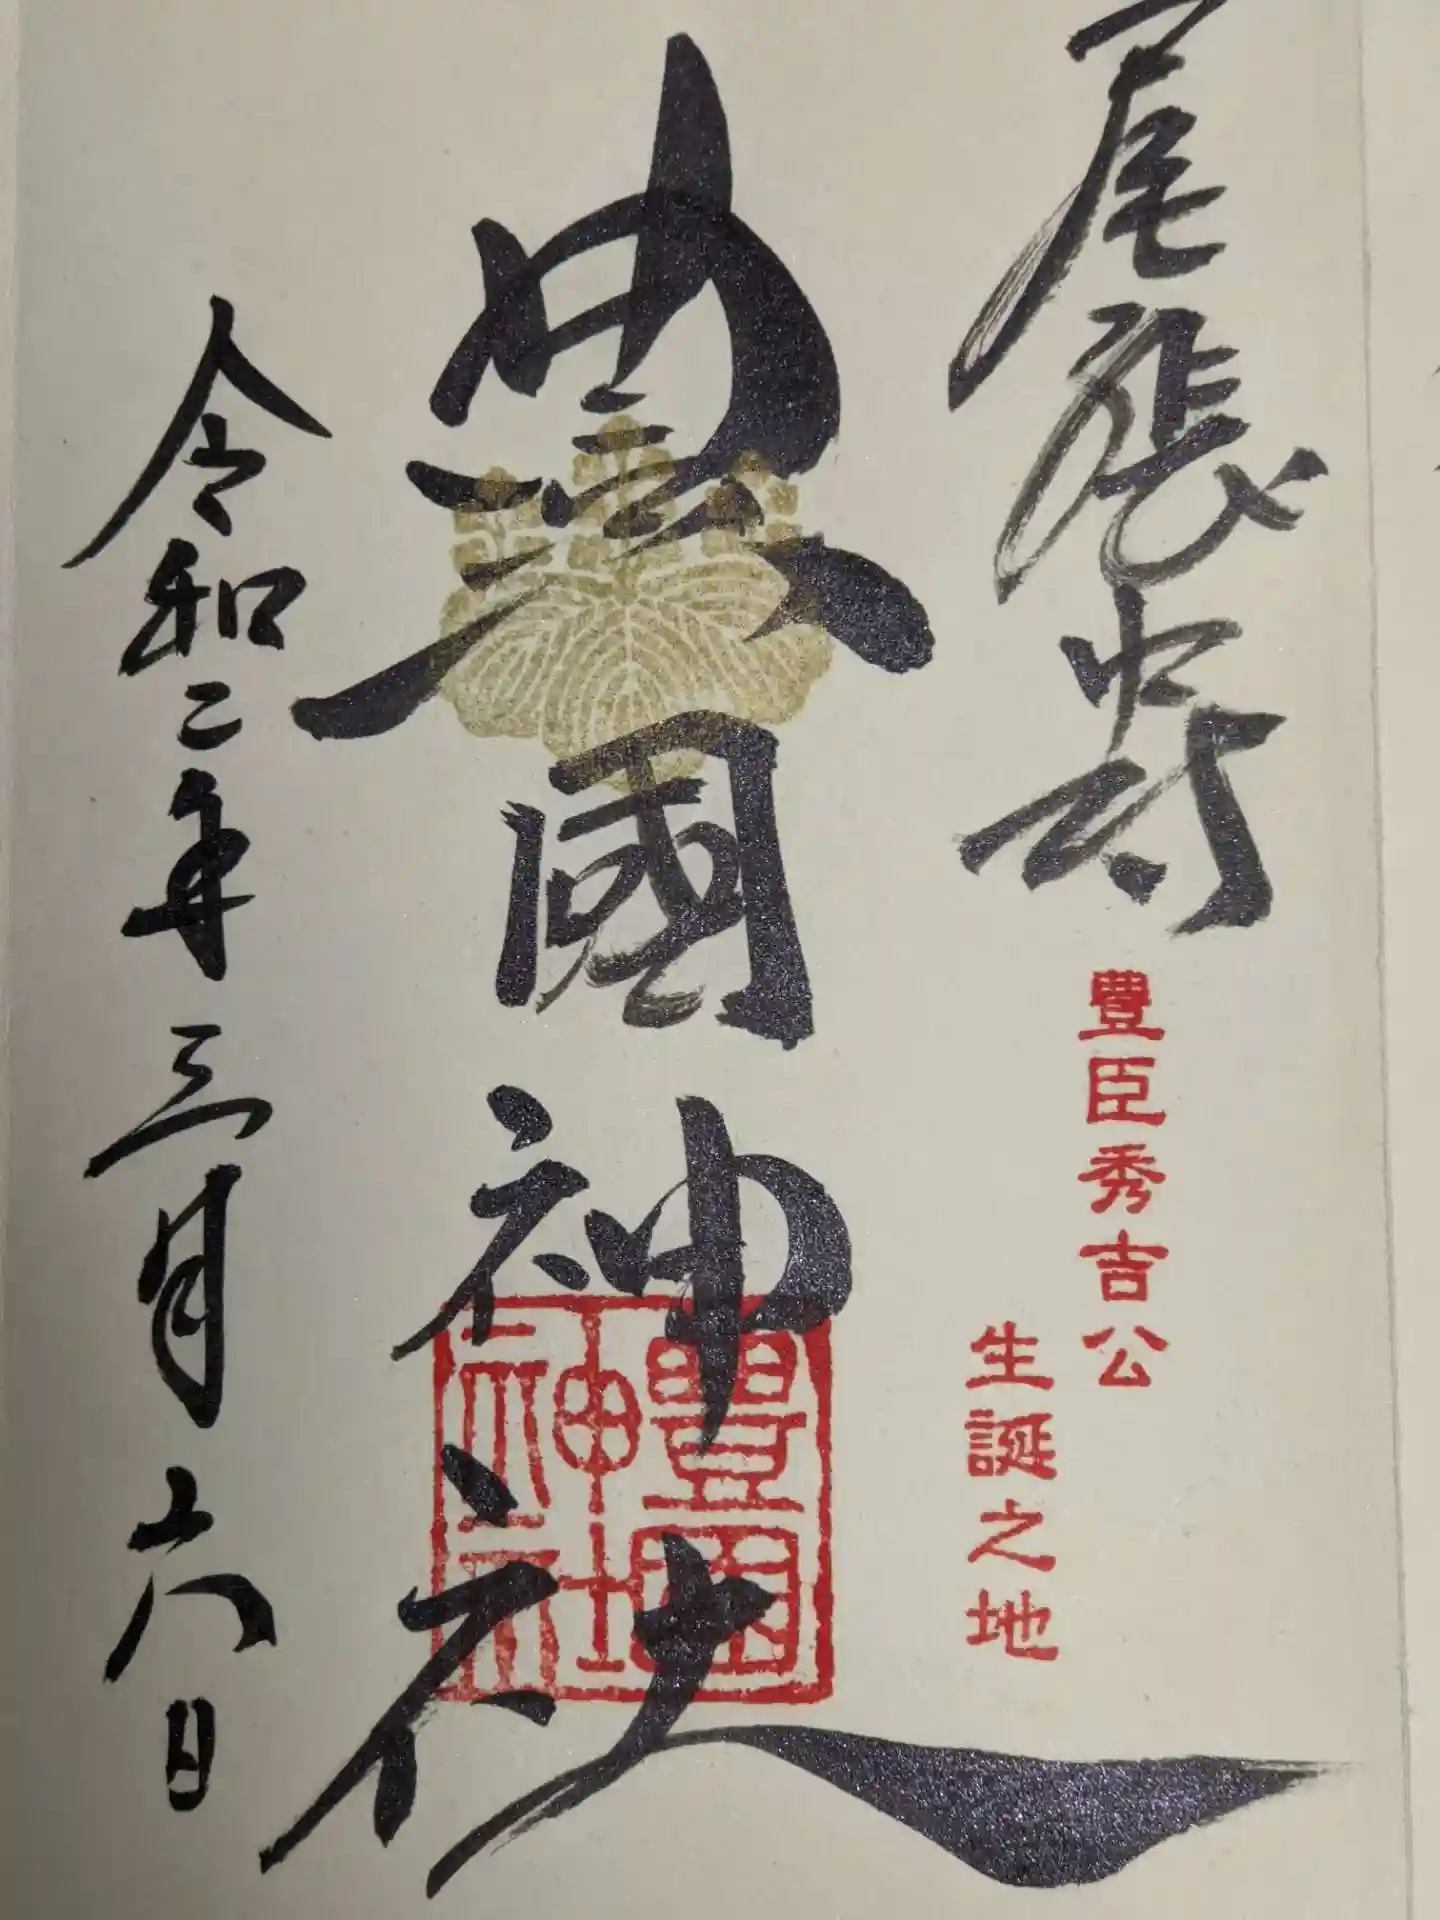 尾張中村
豊臣秀吉公
生誕之地
豊國神社
豊國
神社
令和二年三月六日